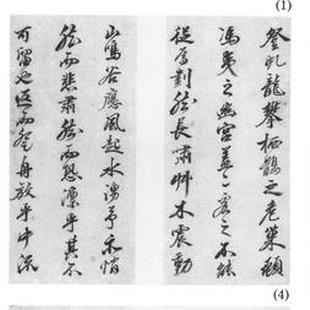 (1)
登虬龍攀栖鶻之危巢頫
馮夷之幽宮蓋二客之不能
從焉劃然長嘯艸木震動
山鳴谷應風起水湧予亦悄
然而悲肅然而恐凛乎其不
可留也返而登舟放乎中流
(4)